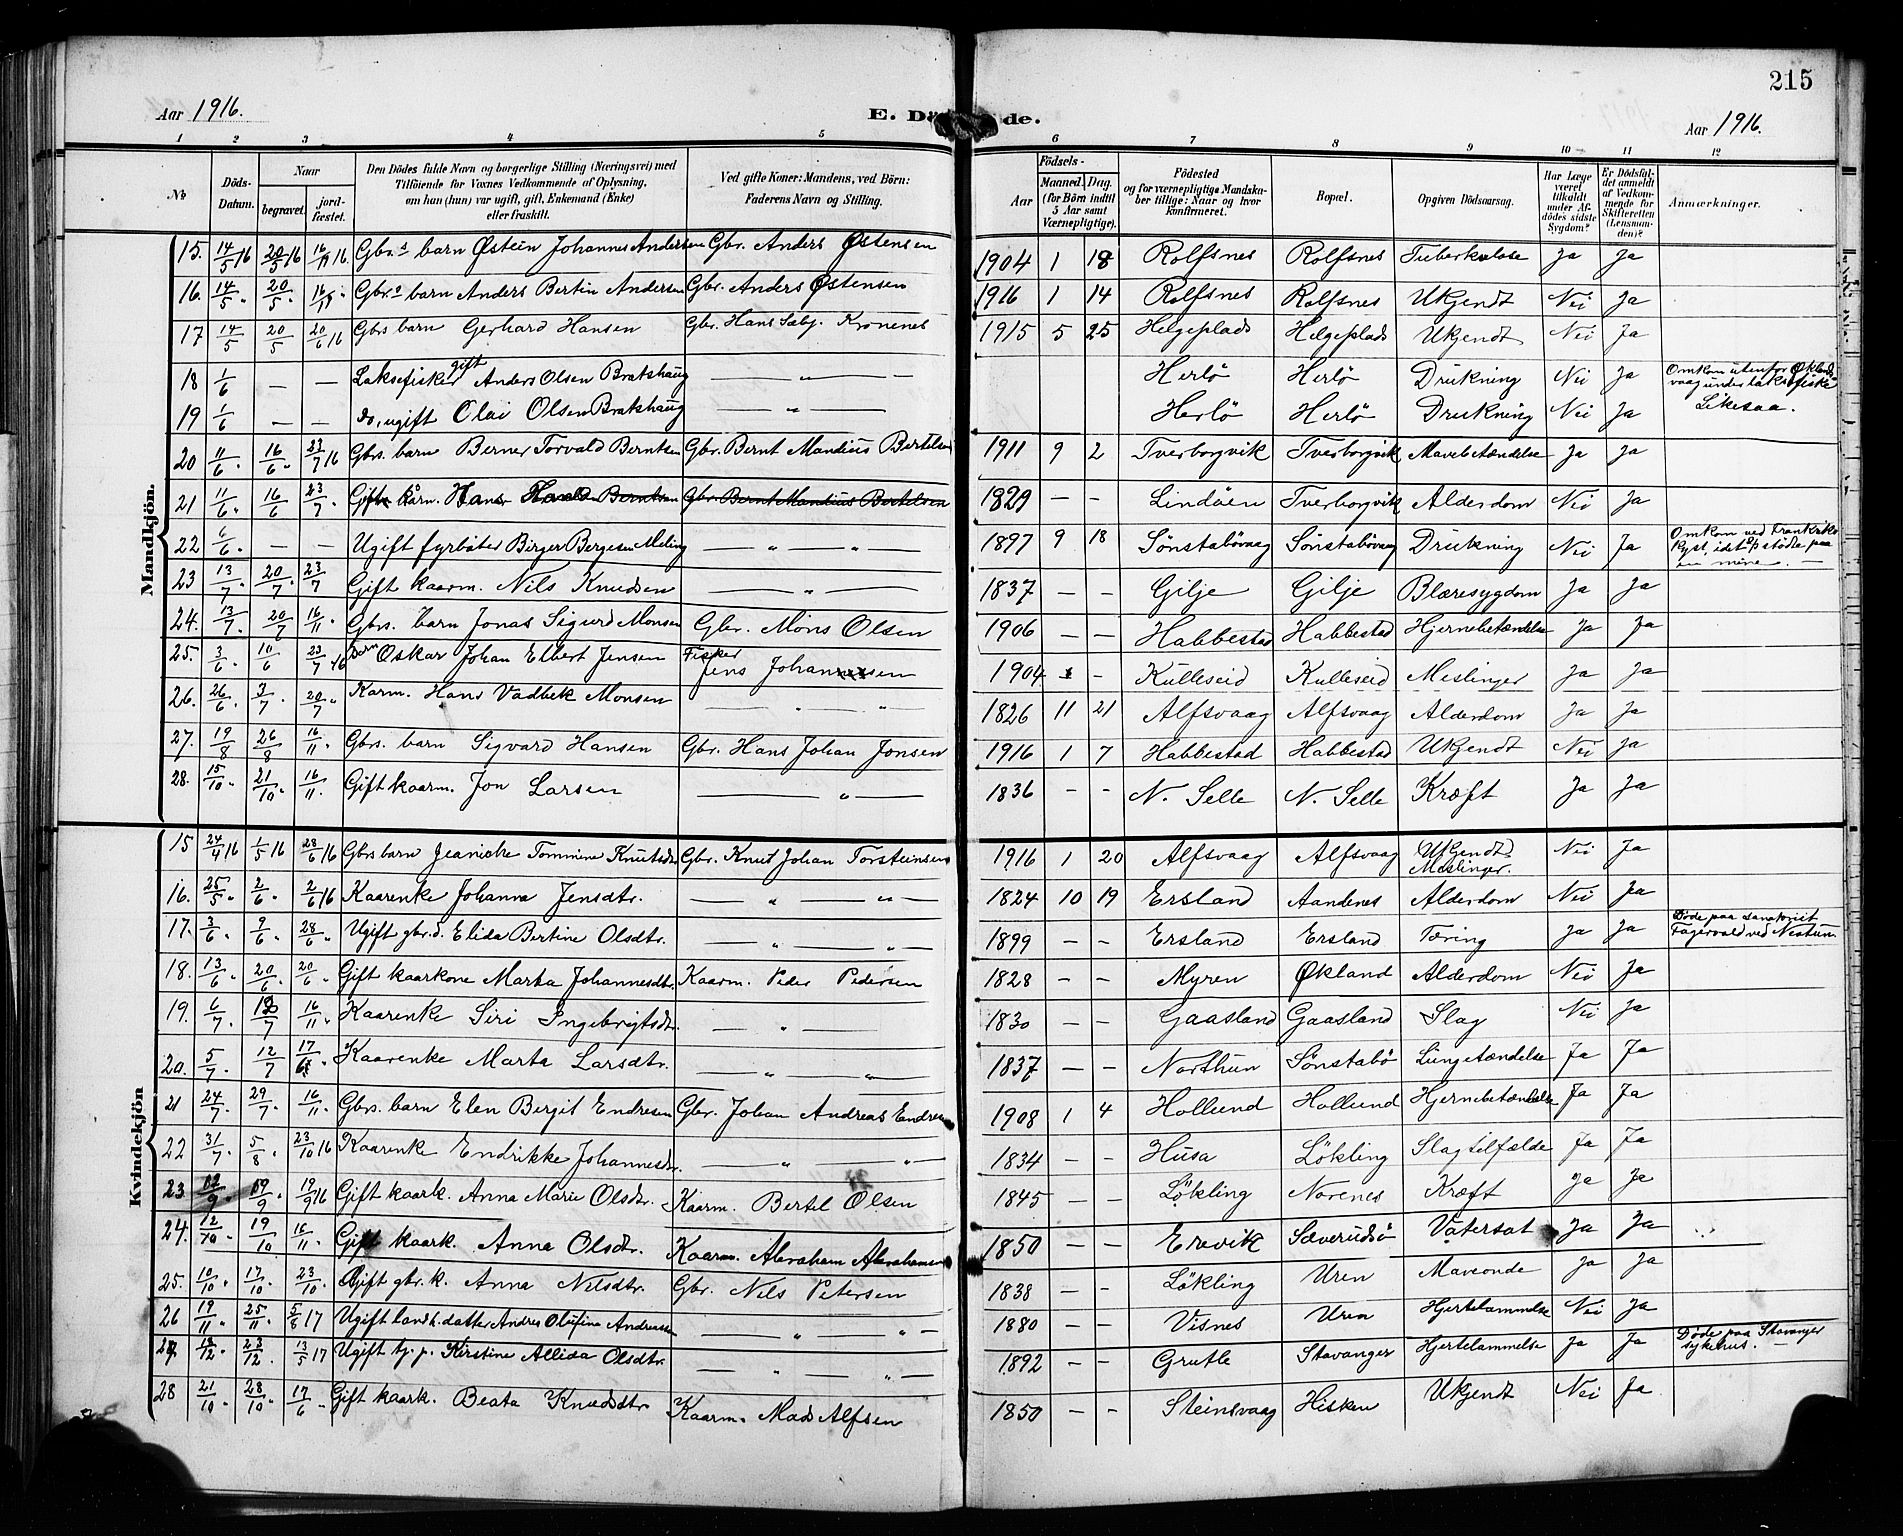 215
Aar 1916.
E. Dö de.
Aar 1916.
1 2 3 4 5 6 7 8 9 10 11 12
No
Döds-Datum.
Naar
begravet.
jordfæstet.
Den Dödes fulde Navn og borgerlige Stilling (Næringsvei) med
Tilföiende for Voxnes Vedkommende af Oplysning,
om han (hun) var ugift, gift, Enkemand (Enke)
eller fraskilt.
Ved gifte Koner: Mandens, ved Börn:
Faderens Navn og Stilling.
Födsels-
Aar
Maaned. Dag.
(for Börn indtil
5 Aar samt
Værnepligtige).
Födested
og for værnepligtige Mandskaber tillige: Naar og hvor
konfirmeret.
Bopæl.
Opgiven Dödsaarsag.
Har Læge været tilkaldt under Afdödes sidste Sygdom?
Er Dödsfaldet anmeldt af Vedkommende for Skifteretten (Lensmanden)?
Anmærkninger.
Mandkjön.
15. 14/5 16 20/5 16 16/11 16 Gbr.s barn Østein Johannes Andersen Gbr. Anders Østensen 1904 1 18 Rolfsnes Rolfsnes Tuberkulose Ja Ja
16. 14/5 " 20/5 " 16/11 " Gbr.s barn Anders Bertin Andersen Gbr. Anders Østensen 1916 1 14 Rolfsnes Rolfsnes Ukjendt Nei Ja
17 14/5 20/5 20/6 16 Gbrs barn Gerhard Hansen Gbr. Hans Sæbj. Kronenes 1915 5 25 Helgeplads Helgeplads Ukjendt Nei Ja
18 1/6 — — Laksefisker gift Anders Olsen Bratshaug — " — Herlø Herlø Drukning Nei Ja Omkom utenfor Øklands
vaag under laksefiske
19 1/6 — — do, ugift Olai Olsen Bratshaug — " — Herlø Herlø Drukning Nei Ja Likesaa.
20 11/6 " 16/6 " 23/7 16 Gbrs. barn Berner Torvald Berntsen Gbr. Bernt Mandius Bertelsen 1911 9 2 Tverborgvik Tverborgvik Mavebetændelse Ja Ja
21 11/6 " 16/6 23/7 Gift kårm. Hans Berntsen Gbr. Bernt Mandius Bertelsen 1829 — — Lindöen Tverborgvik Alderdom Nei Ja
22 6/6 " — — Ugift fyrböter Birger Bergesen Meling — " — " — 1897 9 18 Sönstabövaag Sönstabövaag Drukning Nei Ja Omkom ved Frankriks
Kyst, idet D/S stödte paa
en mine. —
23 13/7 " 20/7 " 23/7 Gift kaarm. Nils Knudsen — " — 1837 — — Gilje Gilje Blæresygdom Ja Ja
24. 13/7 " 20/7 16/11 " Gbrs. barn Jonas Sigurd Monsen Gbr. Möns Olsen 1906 — — Habbestad Habbestad Hjernebetændelse Ja Ja
25. 3/6 " 10/6 23/7 16 Barn Oskar Johan Elbert Jensen Fisker Jens Johannessen 1904 - Kulleseid Kulleseid Meslinger Ja Ja
26. 26/6 " 3/7 " 20/7 " Karm. Hans Vadbek Monsen — " — " — 1826 11 21 Alfsvaag Alfsvaag Alderdom Ja Ja
27. 19/8 26/8 16/11 " Gbrs. barn Sigvard Hansen Gbr. Hans Johan Jonsen 1916 1 7 Habbestad Habbestad Ukjendt Nei Ja
28. 15/10 " 21/10 " 16/11 . Gift kaarm. Jon Larsen — " — 1836 - - N. Selle N. Selle Kræft Ja Ja
Kvindekjön
15 24/4 16 1/5 16 28/6 16 Gbrs barn Jeanicke Tommine Knutsdtr. Gbr. Knut Johan Torsteinsen 1916 1 20 Alfsvaag Alfsvaag Ukjendt
Meslinger. Nei Ja
16. 25/5 " 2/6 " 2/6 16 Kaarenke Johanna Jensdtr. — " — " — 1824 10 19 Ersland Aandenes Alderdom Nei Ja
17. 3/6 " 9/6 " 28/6 " Ugift gbr.d. Elida Bertine Olsdtr. — " — " — 1899 — — Ersland Ersland Tæring Ja Ja Döde paa sanatoriet
Fagervold ved Nestun
18. 13/6 " 20/6 " 20/6 " Gift kaarkone Marta Johannesdtr. Kaarm. Peder Pedersen 1828 — — Myren Økland Alderdom Nei Ja
19. 6/7 " 13/7 16/11 " Kaarenke Siri Ingebrigtsdtr. — " — 1830 — — Gaasland Gaasland Slag Nei Ja
20. 5/7 " 12/7 17/6 " Kaarenke Marta Larsdtr. — " — " — 1837 — — Northun Sönstabö Lungetændelse Ja Ja
21 24/7 " 29/7 " 16/11 " Gbrs. barn Elen Bergit Endresen Gbr. Johan Andreas Endresen 1908 1 4 Hollund Hollund Hjernebetændelse Ja Ja
22 31/7 " 5/8 " 23/10 16 Kaarenke Endrikke Johannesdtr. — " — " — 1834 — — Husa Lökling Slagtilfælde Ja Ja
23 02/9 " 09/9 " 19/9 16 Gift kaark. Anna Marie Olsdtr. Kaarm. Bertel Olsen 1845 — — Lökling Norenes Kræft Ja Ja
24. 12/10 " 19/10 " 16/11 " Gift kaark. Anna Olsdtr. Kaarm. Abraham Abrahamsen 1850 — — Ervik Sæverudsö Vatersot Ja Ja
25. 10/10 " 17/10 " 23/10 " Gift gbr. k. Anna Nilsdtr. Gbr. Nils Petersen 1838 — — Lökling Uren Maveonde Ja Ja
26 19/11 " 25/11 " 5/8 17 Ugift landh. datter Andrea Olufine Andreassen — " — " — 1880 — — Visnes Uren Hjertelammelse Nei Ja
27. /12 " 23/12 " 13/5 17 Ugift tj. p. Kirstine Allida Olsdtr. — " — " — 1892 — — Grutle Stavanger Hjertelammelse Ja Ja Döde paa Stavanger
sykehus. —
28 21/10 " 28/10 " 17/6 " Gift kaark. Beata Knudsdtr. Kaarm. Mads Alfsen 1850 — — Steinsvaag Hisken Ukjendt Nei Ja